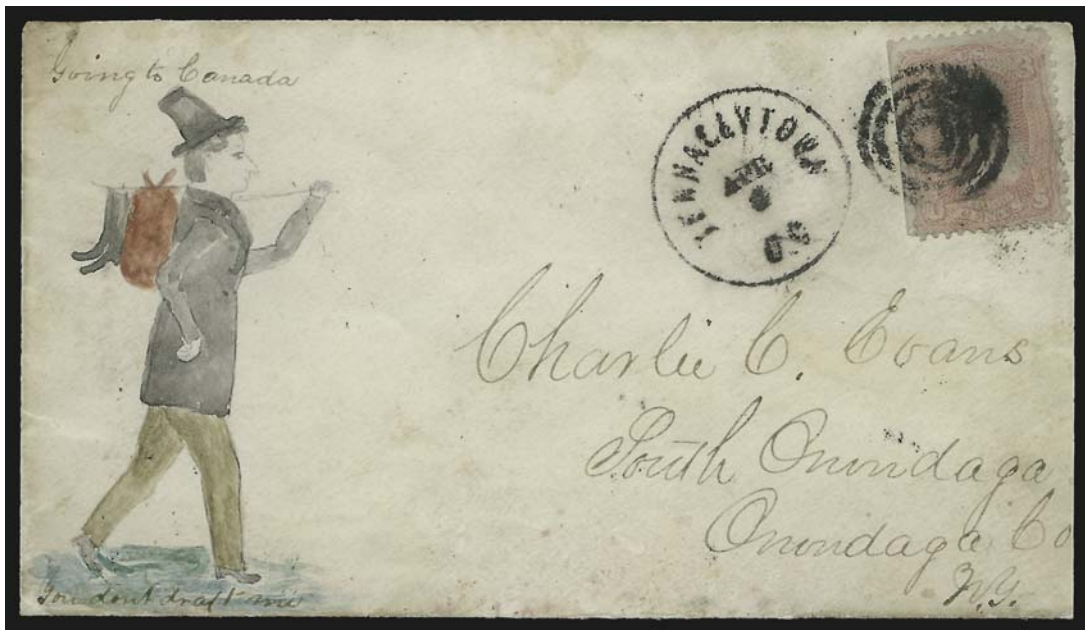 Going to Canada
TENNALLYTOWN
APR
D.C
3
U S
CENTS
Charlie C. Evans
South Onondaga
Onondaga Co
N.Y.
You dont draft me